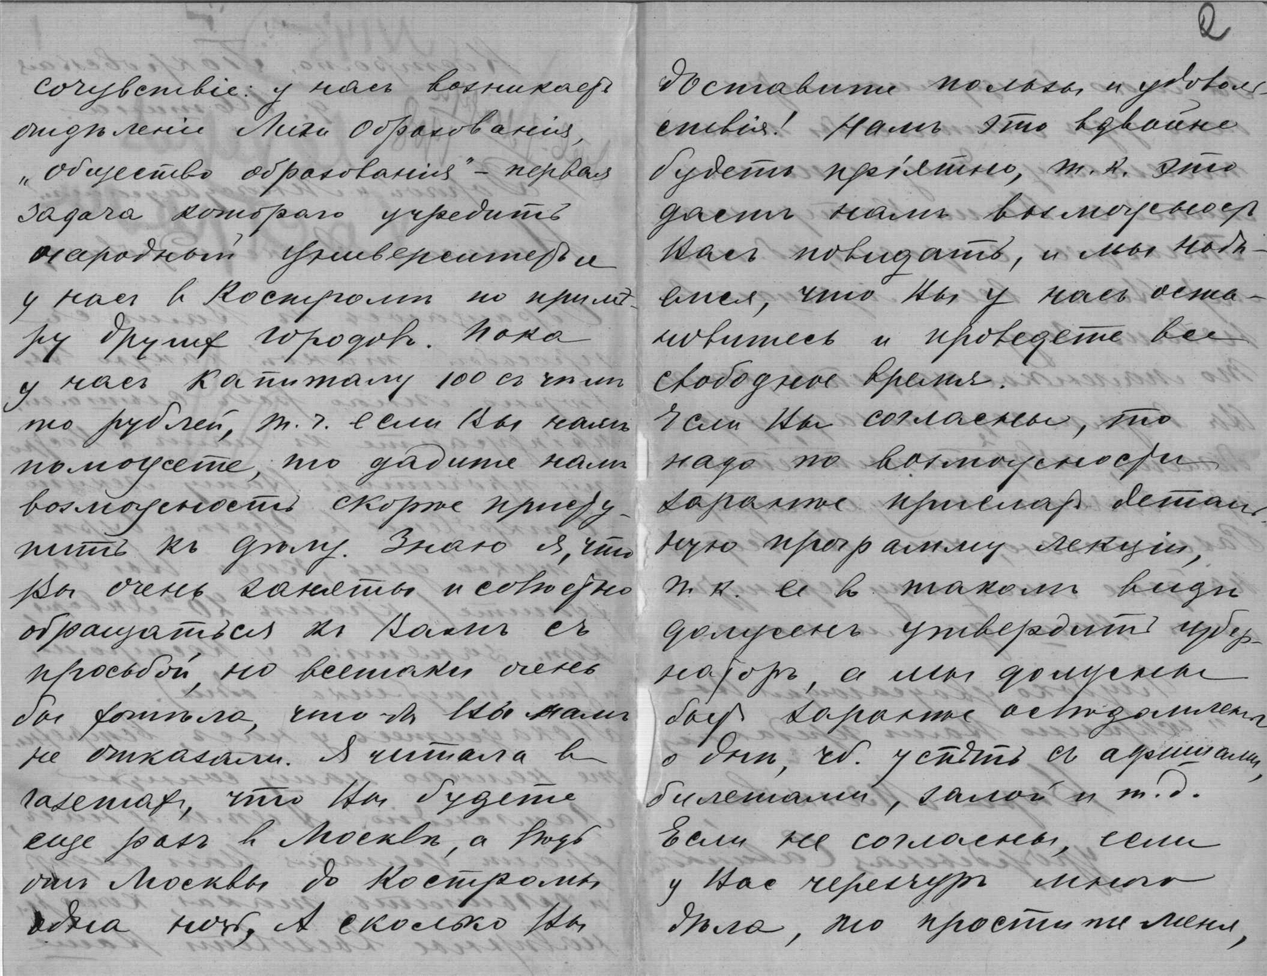 2
сочувствіе: у насъ возникаетъ
отдѣленіе Лиги Образованія,
„общество образованія" – первая
задача котораго учредить
народный университетъ и
у насъ в Костромѣ по примѣ-
ру других городовъ. Пока
у насъ капиталу 100 съ чѣмъ
то рублей, т. ч. если Вы намъ
поможете, то дадите намъ
возможность скорѣе присту-
пить къ дѣлу. Знаю я, что
Вы очень заняты и совѣстно
обращаться къ Вамъ съ
просьбой, но всетаки очень
бы хотѣла, что б Вы намъ
не отказали. Я читала в
газетах, что Вы будете
еще разъ в Москвѣ, а ведь
отъ Москвы до Костромы
одна ночь, А сколько Вы
доставите пользы и удоволь-
ствія! Намъ это вдвойне
будетъ пріятно, т. к. это
дастъ намъ возможность
Васъ повидать, и мы надѣ-
емся, что Вы у насъ оста-
новитесь и проведете все
свободное время.
Если Вы согласны, то
надо по возможности
заранѣе прислать деталь-
ную программу лекціи,
т. к. ее в такомъ видѣ
долженъ утвердить губер-
наторъ, а мы должны
быть заранѣе освѣдомлены
о днѣ, чб. успѣть съ афишами,
билетами, залой и т. д.
Если не согласны, если
у Вас черезчуръ много
дѣла, то простите меня,